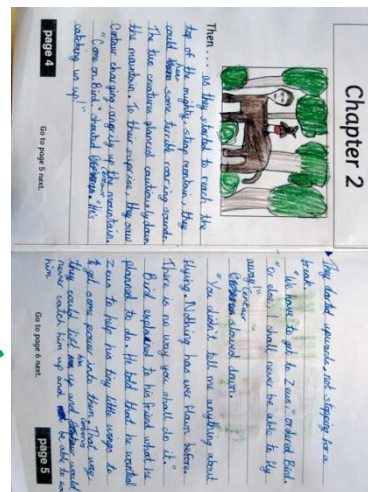 Chapter 2
Then... as they started to reach the
top of the mighty, steep mountain, they
could hear some terrible roaring sounds.
The two creatures glanced cautiously down
the mountain. To their surprise, they saw
Centaur charging angrily up the mountain.
"Come on Bird," shouted Centaur. "He's
catching us up!"
Go to page 5 next.
page 4
They darted upwards, not stopping for a
break.
"We have to get to Zeus," ordered Bird,
"or else I shall never be able to fly
away!"
Centaur slowed down.
"You didn't tell me anything about
flying. Nothing has ever flown before.
There is no way you shall do it."
Bird explained to his friend what he
planned to do. He told that he wanted
Zeus to help his tiny little wings to
get some power into them. That way,
they would lift him up and would
never catch him up and be able to
him.
Go to page 6 next.
page 5